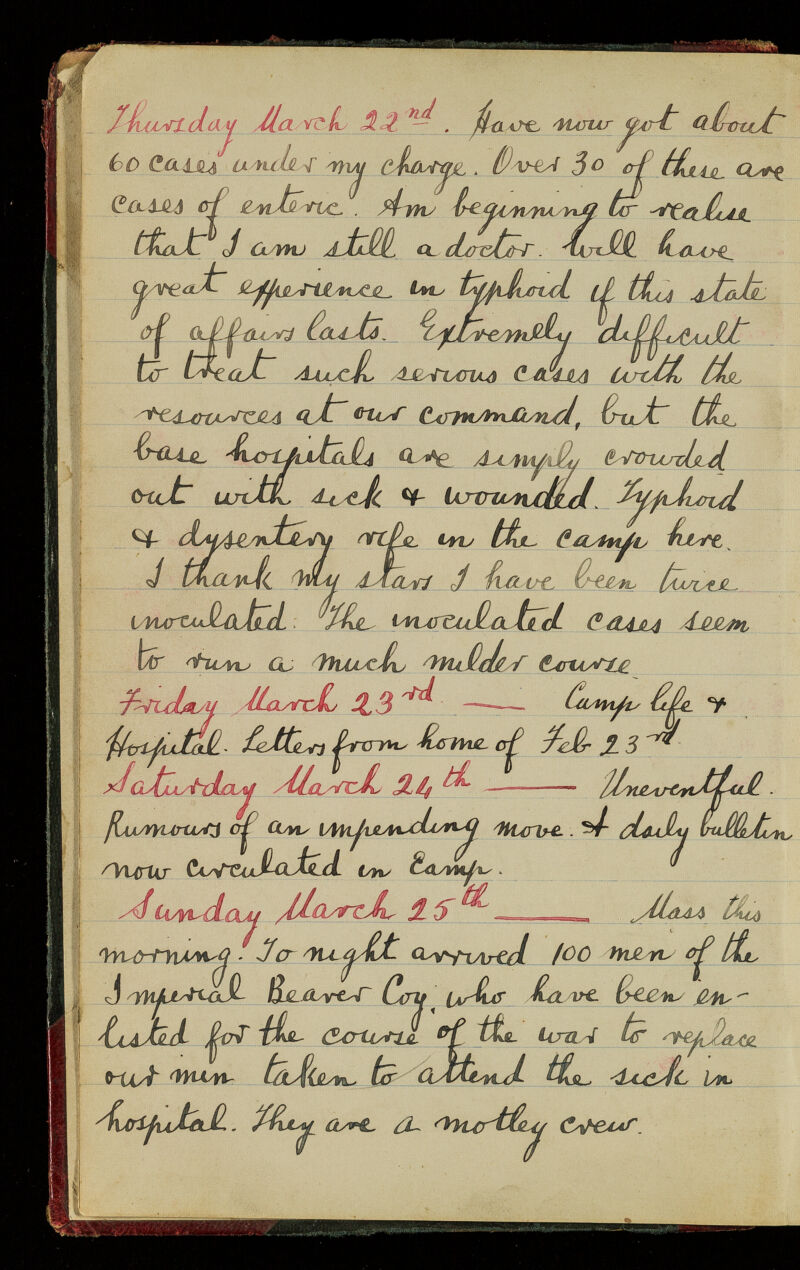 Thursday March 22nd. Have now got about
60 cases under my charge. Over 30 of these are
cases of enteric. Am beginning to realise
that I am still a doctor. Will have
great experience in typhoid if this state
of affairs lasts. Extremely difficult
to treat such serious cases with the
resources at our command, but the
base hospitals are simply crowded
out with sick & wounded. Typhoid
& dysentery rife in the camp here.
I thank my stars I have been twice
inoculated. The inoculated cases seem
to run a much milder course
Friday March 23rd — Camp life &
Hospital. Letters from home of Feb 23rd
Saturday March 24th — Uneventful.
Rumours of an impending move. A daily bulletin
now circulated in Camp.
Sunday March 25th — Mass this
morning. To night arrived 100 men of the
Imperial Bearer Coy, who have been en-
listed for the course of the war to replace
our men taken to attend the sick in
hospital. They are a motley crew.